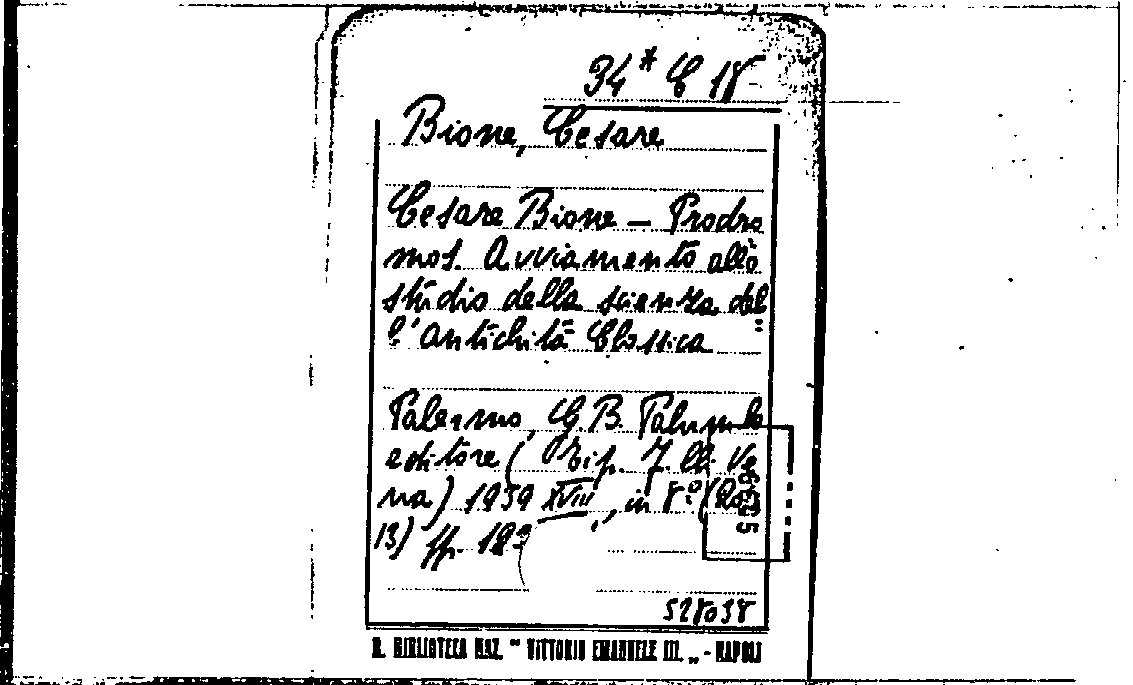 34* C 18
Bione, Cesare
Cesare Bione – Prodro
mos. Avviamento allo
studio della scienza del
l'Antichità Classica
Palermo, G.B. Palumbo
editore (Tip. F.lli Ve
na) 1939 XVIII, in 8.° (
13) pp. 182
528038
R. BIBLIOTECA NAZ. "VITTORIO EMANUELE III." - NAPOLI